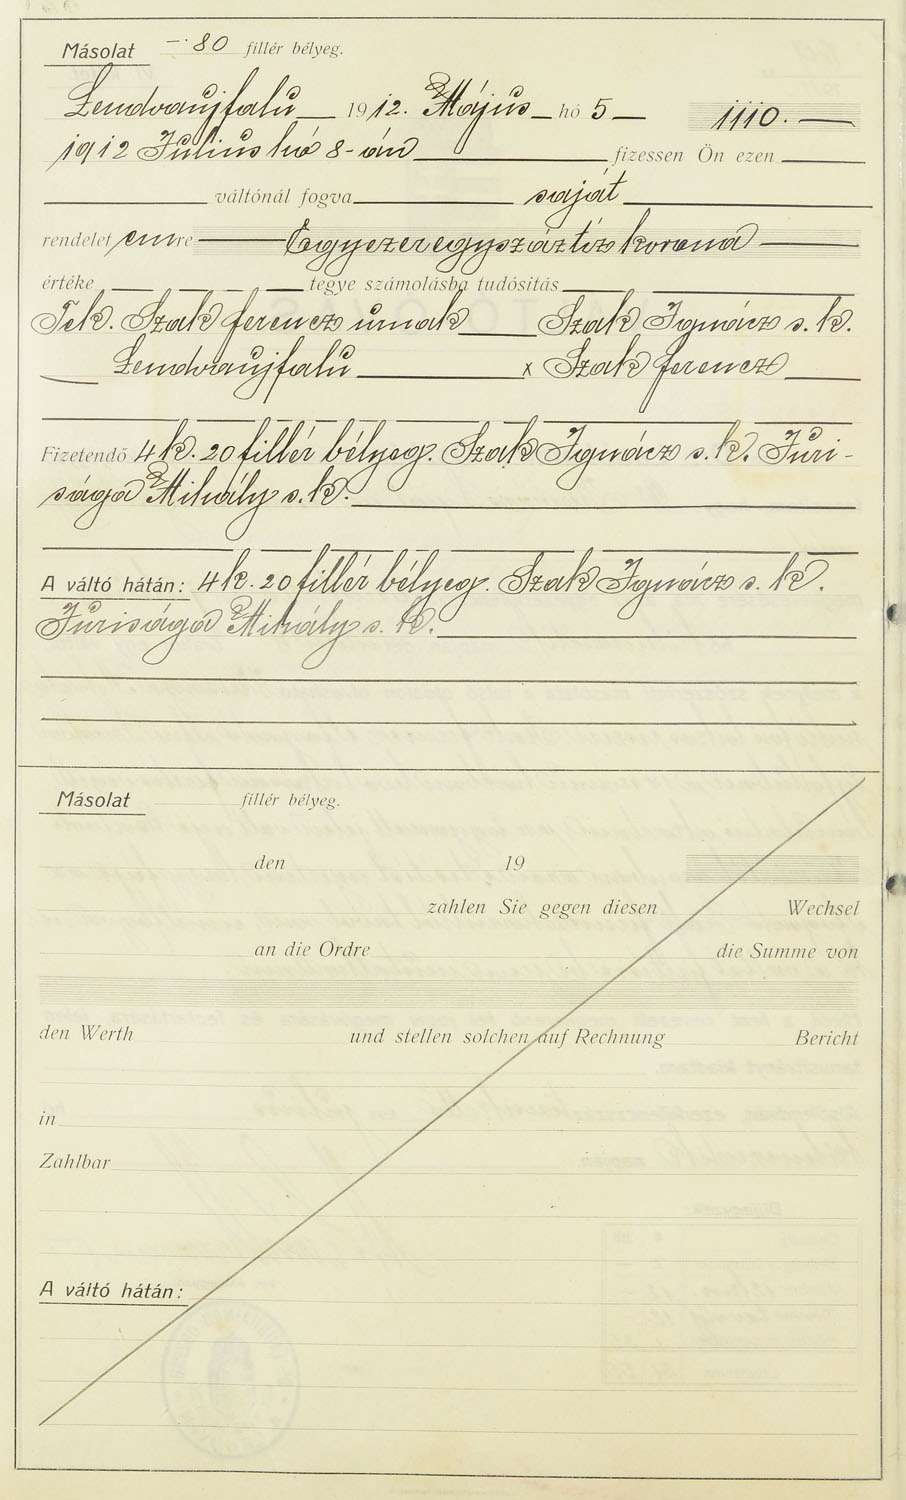 Másolat —·80 fillér bélyeg.
Lendvaujfalu 1912. Május hó 5 1110.
1912 Julius hó 8-án fizessen Ön ezen
váltónál fogva saját
rendeletemre Egyezeregyszáztíz korona
értéke tegye számolásba tudósitás
Tek. Szak ferencz úrnak Szak Ignácz s. k.
Lendvaujfalu x Szak ferencz
Fizetendő 4 k. 20 fillér bélyeg. Szak Ignácz s. k. Juri-
sága Mihály s. k.
A váltó hátán: 4 k. 20 fillér bélyeg. Szak Ignácz s. k.
Jurisága Mihály s. k.
Másolat fillér bélyeg.
den 19
zahlen Sie gegen diesen Wechsel
an die Ordre die Summe von
den Werth und stellen solchen auf Rechnung Bericht
in
Zahlbar
A váltó hátán: